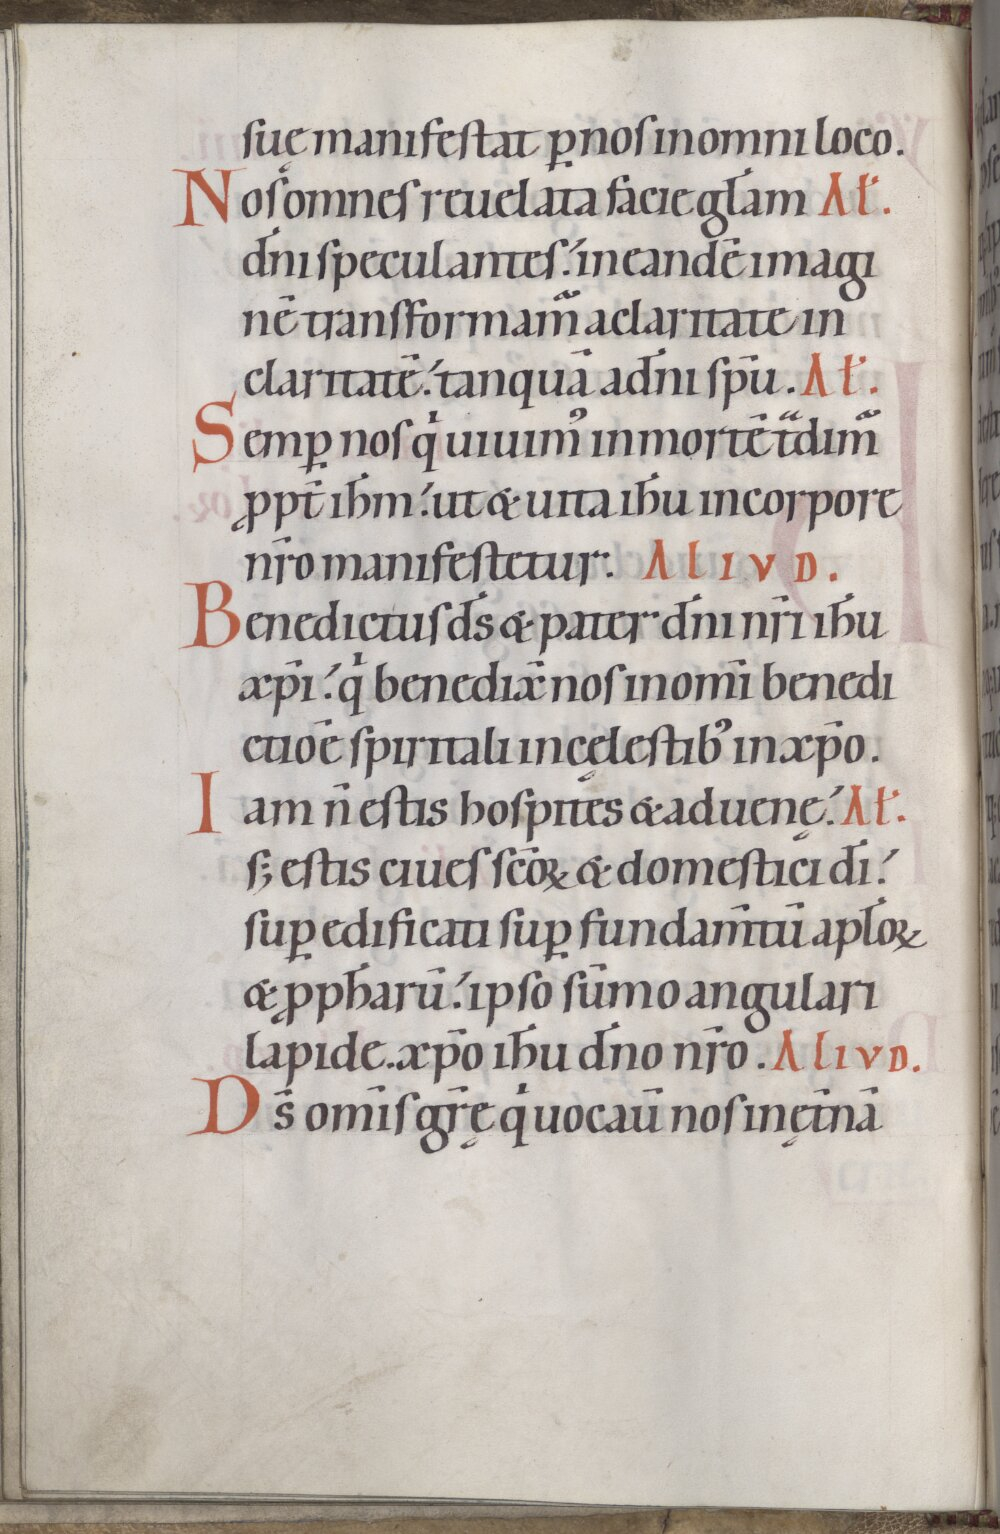 suę manifestat ꝑ nos in omni loco.
Nos omnes reuelata facie gl̄am Al̄.
dn̄i speculantes. in eandē imagi
nē transformam̃ a claritate in
claritatē. tanquā a dn̄i sp̄u. Al̄.
Semꝑ nos qͥ uiuim᷒ in mortē t̃dim̃
ꝓpt̄ ih̄m. ut & uita ih̄u in corpore
nr̄o manifestetur. ALIVD.
Benedictus ds̄ & pater dn̄i nr̄i ih̄u
xp̄i. qͥ benedix̄ nos in om̄i benedi
ctiōe spiritali in cęlestib᷒ in xp̄o.
Iam n̄ estis hospites & aduenę. Al̄.
sꝫ estis ciues sc̄oꝝ & domestici dī.
suꝑedificati suꝑ fundam̄tū apl̄oꝝ
& ꝓph̄arū. ipso sūmo angulari
lapide. xp̄o ih̄u dn̄o nr̄o. ALIVD.
Ds̄ om̄is gr̄ę qͥ uocau̅ nos in ęt̄nā